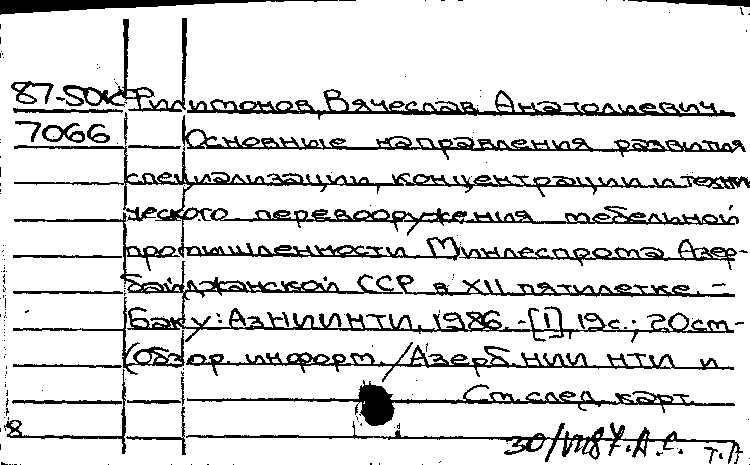 87-50к Филимонов, Вячеслав Анатолиевич.
7066 Основные направления развития
специализации, концентрации и техни
ческого перевооружения мебельной
промышленности Минлеспрома Азер-
байджанской ССР в XII пятилетке. -
Баку: АзНИИНТИ, 1986. -[1], 19с.; 20см-
(Обзор. информ. / Азерб.НИИ НТИ и
См.след. карт.
8
30/VII87.А.С. Т.А